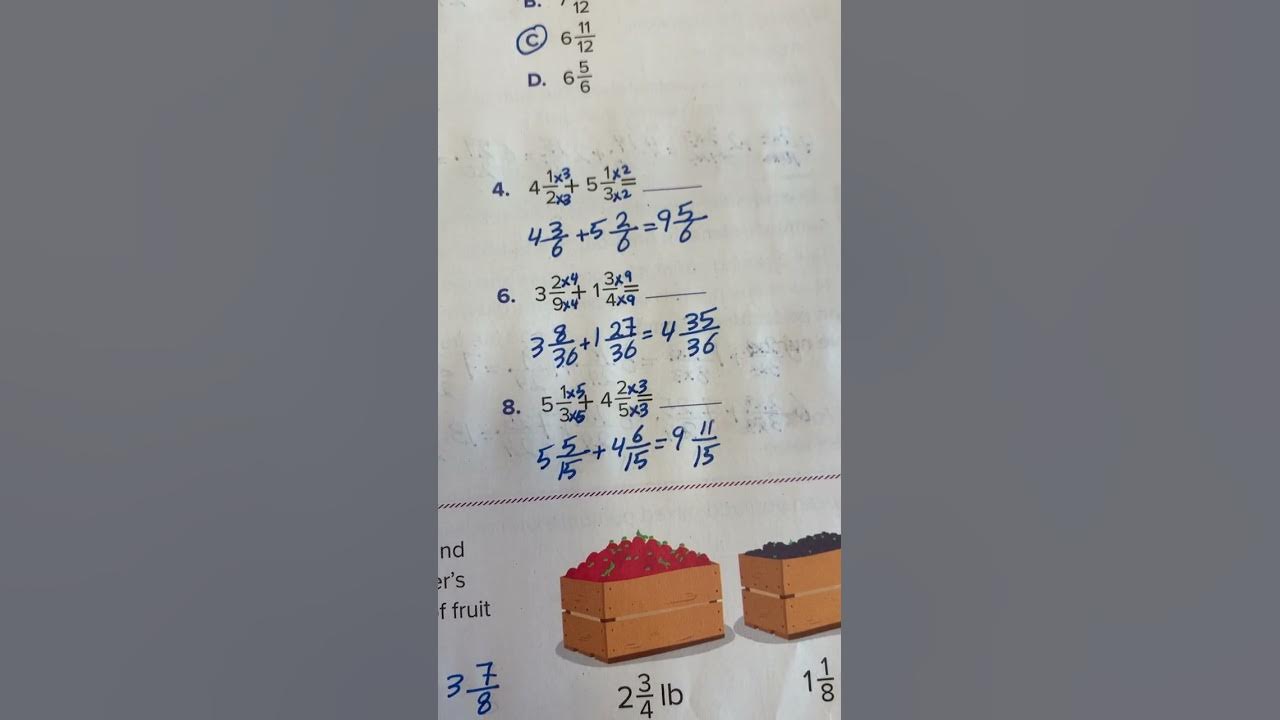 B. 7 /12
C 6 11/12
D. 6 5/6
4. 4 1×3/2×3 + 5 1×2/3×2 = ____
4 3/6 + 5 2/6 = 9 5/6
6. 3 2×4/9×4 + 1 3×9/4×9 = ____
3 8/36 + 1 27/36 = 4 35/36
8. 5 1×5/3×5 + 4 2×3/5×3 = ____
5 5/15 + 4 6/15 = 9 11/15
nd
er's
f fruit
3 7/8
2 3/4 lb
1 1/8